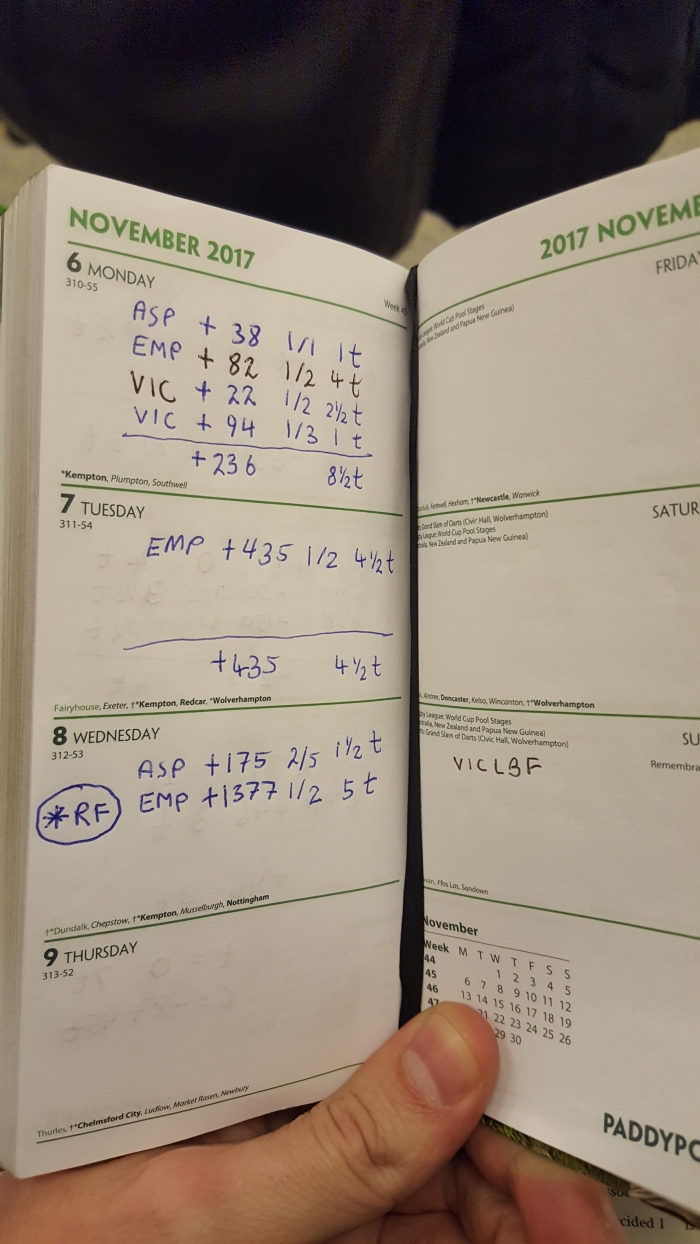 NOVEMBER 2017
6 MONDAY
310-55
Week 45
ASP + 38 1/1 1t
EMP + 82 1/2 4t
VIC + 22 1/2 2½t
VIC + 94 1/3 1t
+236 8½t
*Kempton, Plumpton, Southwell
7 TUESDAY
311-54
EMP +435 1/2 4½t
+435 4½t
Fairyhouse, Exeter, †*Kempton, Redcar, *Wolverhampton
8 WEDNESDAY
312-53
ASP +175 2/5 1½t
*RF EMP +1377 1/2 5t
†*Dundalk, Chepstow, †*Kempton, Musselburgh, Nottingham
9 THURSDAY
313-52
Thurles, †*Chelmsford City, Ludlow, Market Rasen, Newbury
2017 NOVEMBE
FRIDAY
League: World Cup Pool Stages
New Zealand and Papua New Guinea)
Fontwell, Hexham, †*Newcastle, Warwick
SATUR
Grand Slam of Darts (Civic Hall, Wolverhampton)
League: World Cup Pool Stages
New Zealand and Papua New Guinea)
Aintree, Doncaster, Kelso, Wincanton, †*Wolverhampton
SU
Remembra
League: World Cup Pool Stages
New Zealand and Papua New Guinea)
Grand Slam of Darts (Civic Hall, Wolverhampton)
VIC LBF
Ffos Las, Sandown
November
Week M T W T F S S
44 1 2 3 4 5
45 6 7 8 9 10 11 12
46 13 14 15 16 17 18 19
47 21 22 23 24 25 26
29 30
PADDYPO
cided I